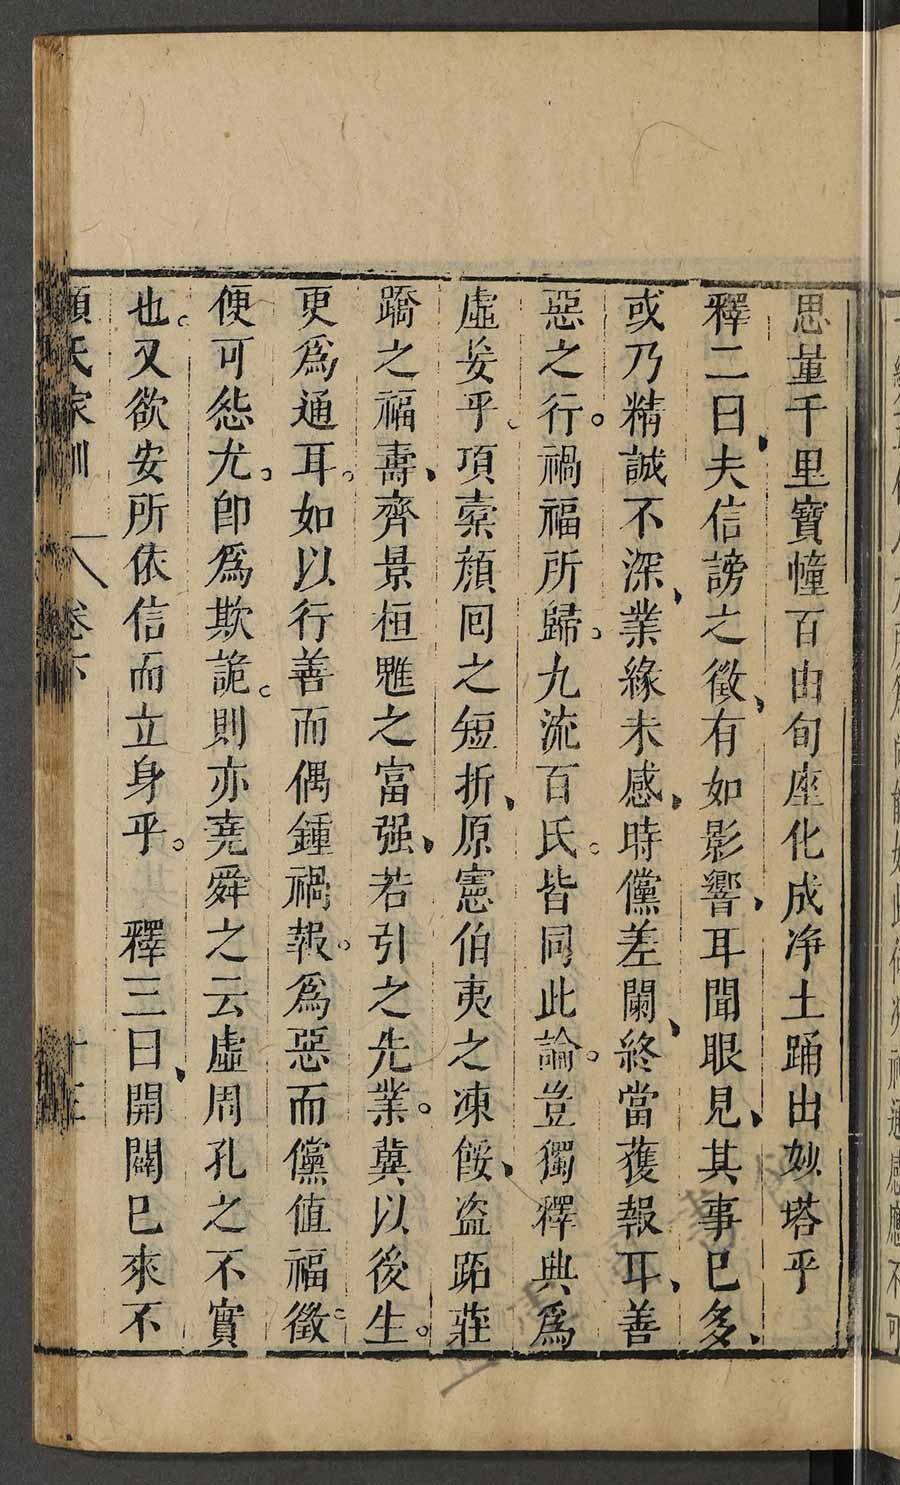 思量千里寶幢百由旬座化成淨土踊出妙塔乎
釋二曰夫信謗之徵有如影響耳聞眼見其事已多
或乃精誠不深業緣未感時儻差闌終當獲報耳善
惡之行禍福所歸九流百氏皆同此論豈獨釋典爲
虛妄乎項橐顔回之短折原憲伯夷之凍餒盜跖莊
蹻之福壽齊景桓魋之富强若引之先業冀以後生
更爲通耳如以行善而偶鍾禍報爲惡而儻值福徵
便可怨尤卽爲欺詭則亦堯舜之云虛周孔之不實
也又欲安所依信而立身乎　釋三曰開闢已來不
顔氏家訓　卷六　十三